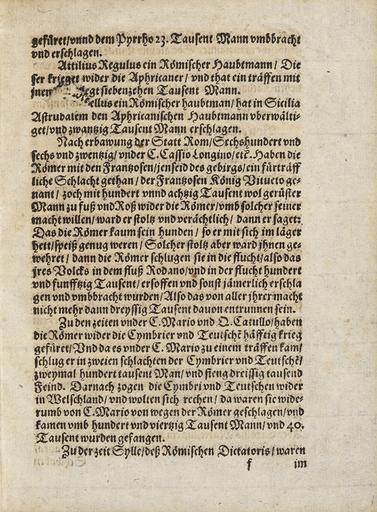 gefüret/vnnd dem Pyrrho 23. Tausent Mann vmbbracht
vnd erschlagen.
Attilius Regulus ein Römischer Haubtmann/ Die
ser krieget wider die Aphricaner/ vnd that ein träffen mit
jnen siebenzehen Tausent Mann.
ellus ein Römischer haubtman/hat in Sicilia
Astrudalem den Aphricanischen Haubtmann vberwälti-
get/vnd zwantzig Tausent Mann erschlagen.
Nach erbawung der Statt Rom/Sechshundert vnd
sechs vnd zwentzig/ vnder C. Cassio Longino/etc. Haben die
Römer mit den Frantzosen/jenseid des gebirgs/ein fürträff
liche Schlacht gethan/ der Frantzosen König Vitueto ge-
nant/ zoch mit hundert vnnd achtzig Tausent wol gerüster
Mann zu fuß vnd Roß wider die Römer/vmb solcher seiner
macht willen/ward er stoltz vnd verächtlich/ dann er saget:
Das die Römer kaum sein hunden/ so er mit sich im läger
hett/speiß genug weren/ Solcher stoltz aber ward jhnen ge-
wehret/ dann die Römer schlugen sie in die flucht/also das
jres Volcks in dem fluß Rodano/vnd in der flucht hundert
vnd funfftzig Tausent/ ersoffen vnd sonst jämerlich erschla
gen vnd vmbbracht wurden/Also das von aller jhrer macht
nicht mehr dann dreyssig Tausent dauon entrunnen sein.
Zu den zeiten vnder C. Mario vnd Q. Catullo/haben
die Römer wider die Cymbrier vnd Teutschē häfftig krieg
gefüret/ Vnd da es vnder C. Mario zu einem träffen kam/
schlug er in zweien schlachten der Cymbrier vnd Teutschē/
zweymal hundert tausent Man/ vnd fieng dreissig tausend
Feind. Darnach zogen die Cymbri vnd Teutschen wider
in Welschland/ vnd wolten sich rechen/ da waren sie wide-
rumb von C. Mario von wegen der Römer geschlagen/vnd
kamen vmb hundert vnd viertzig Tausent Mann/ vnd 40.
Tausent wurden gefangen.
Zu der zeit Sylle/deß Römischen Dictatoris/ waren
f im